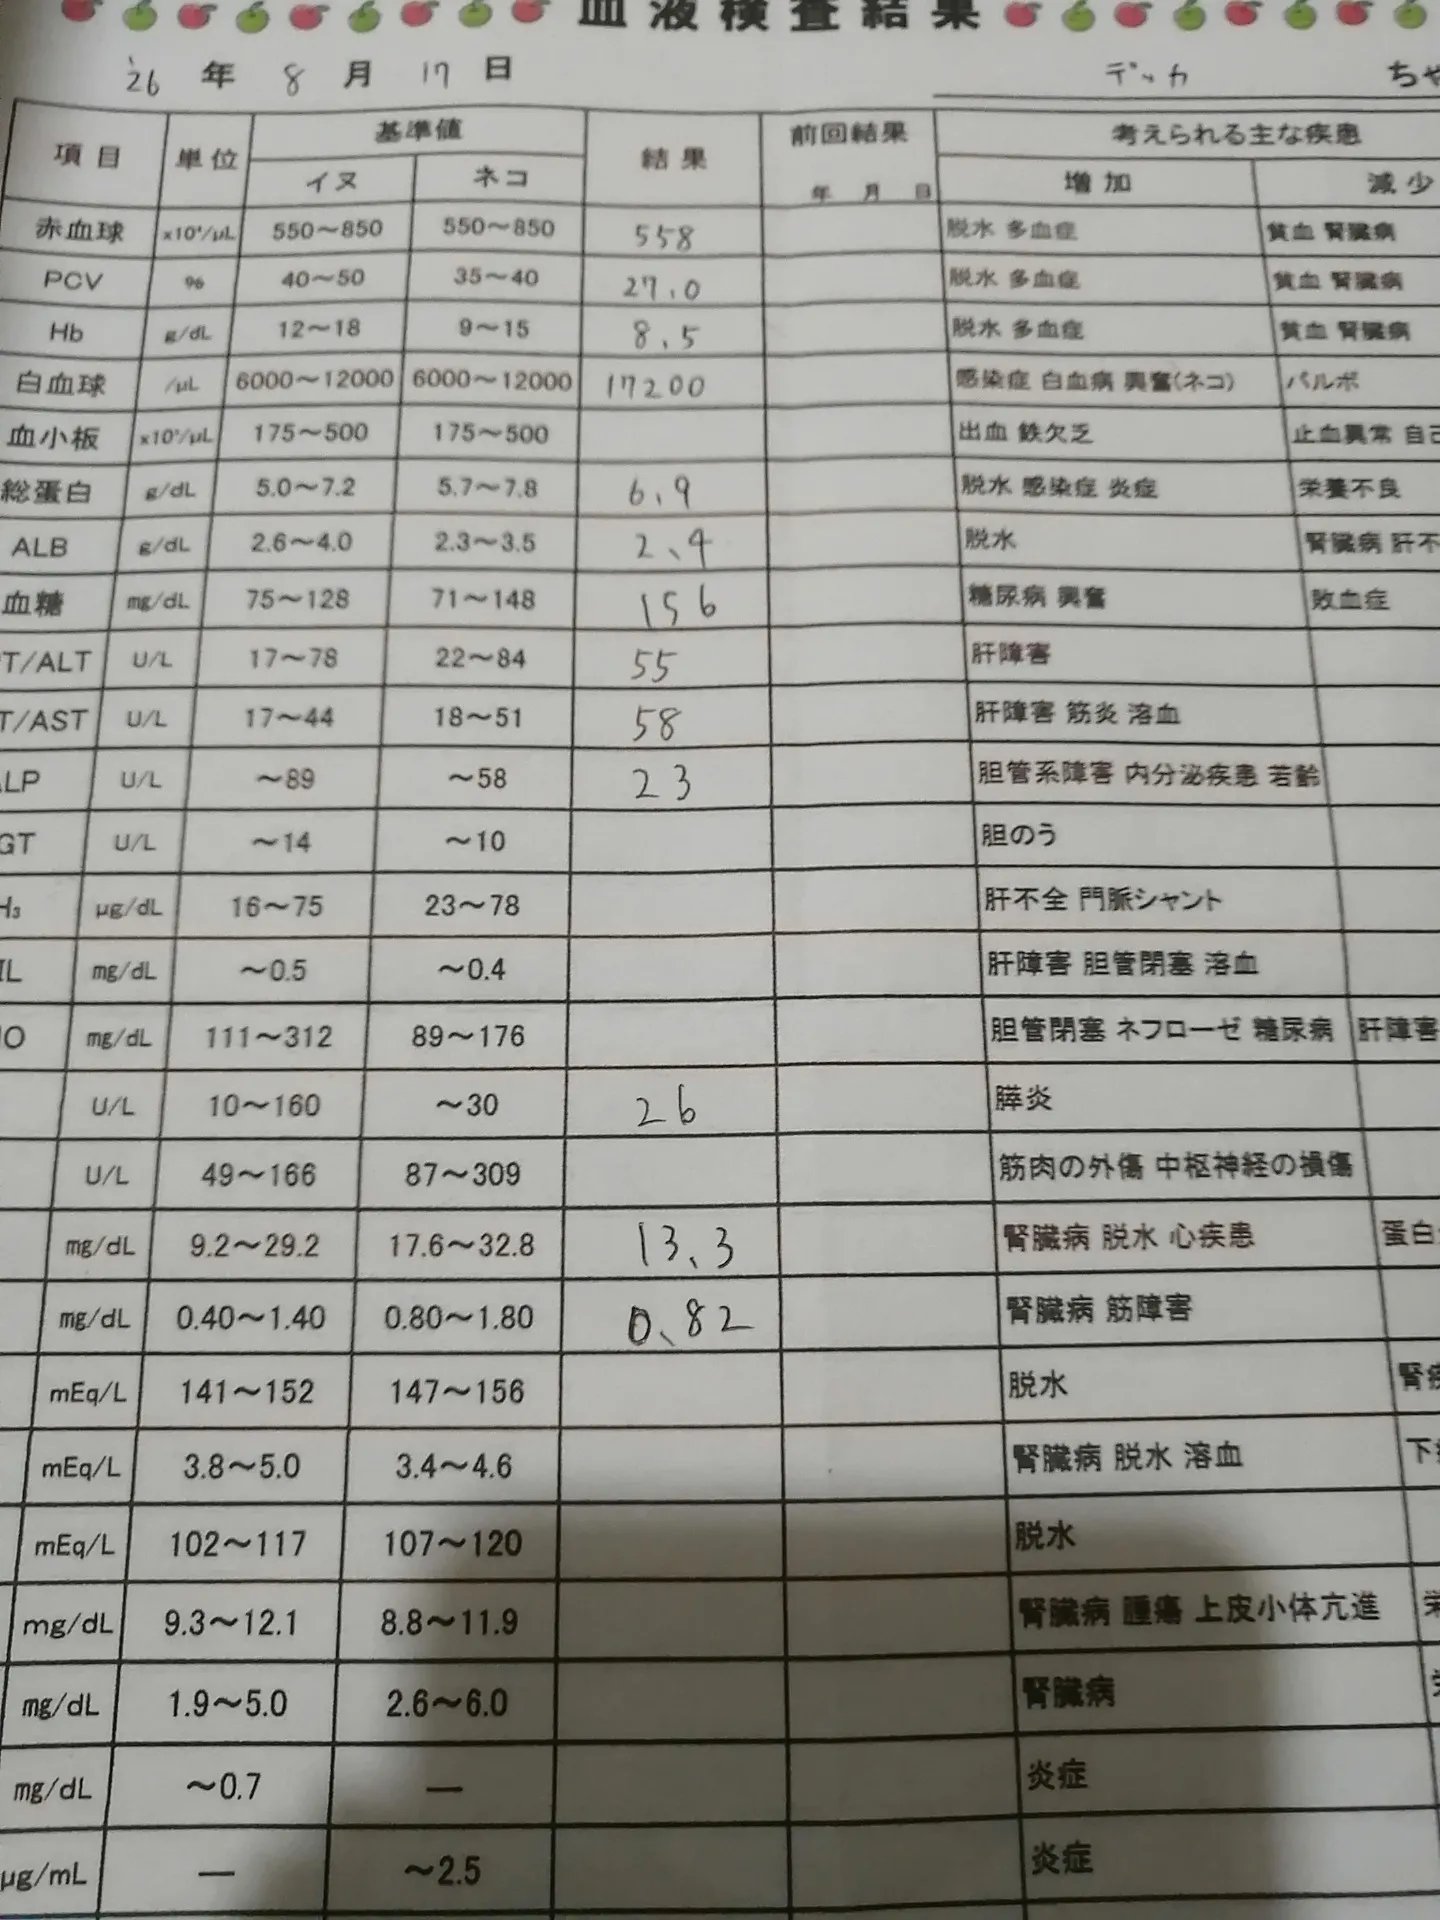 血液検査結果
'26 年 8 月 17 日 デッカ ちゃ
項目 単位 基準値 結果 前回結果 考えられる主な疾患
イヌ ネコ 年 月 日 増加 減少
赤血球 550～850 550～850 558 脱水 多血症 貧血 腎臓病
PCV % 40～50 35～40 27.0 脱水 多血症 貧血 腎臓病
Hb g/dL 12～18 9～15 8.5 脱水 多血症 貧血 腎臓病
白血球 /μL 6000～12000 6000～12000 17200 感染症 白血病 興奮(ネコ) パルボ
血小板 175～500 175～500 出血 鉄欠乏 止血異常 自己
総蛋白 g/dL 5.0～7.2 5.7～7.8 6.9 脱水 感染症 炎症 栄養不良
ALB g/dL 2.6～4.0 2.3～3.5 2.4 脱水 腎臓病 肝不
血糖 mg/dL 75～128 71～148 156 糖尿病 興奮 敗血症
T/ALT U/L 17～78 22～84 55 肝障害
T/AST U/L 17～44 18～51 58 肝障害 筋炎 溶血
LP U/L ～89 ～58 23 胆管系障害 内分泌疾患 若齢
GT U/L ～14 ～10 胆のう
H₃ μg/dL 16～75 23～78 肝不全 門脈シャント
IL mg/dL ～0.5 ～0.4 肝障害 胆管閉塞 溶血
O mg/dL 111～312 89～176 胆管閉塞 ネフローゼ 糖尿病 肝障害
U/L 10～160 ～30 26 膵炎
U/L 49～166 87～309 筋肉の外傷 中枢神経の損傷
mg/dL 9.2～29.2 17.6～32.8 13.3 腎臓病 脱水 心疾患 蛋白
mg/dL 0.40～1.40 0.80～1.80 0.82 腎臓病 筋障害
mEq/L 141～152 147～156 脱水
mEq/L 3.8～5.0 3.4～4.6 腎臓病 脱水 溶血 下
mEq/L 102～117 107～120 脱水
mg/dL 9.3～12.1 8.8～11.9 腎臓病 腫瘍 上皮小体亢進
mg/dL 1.9～5.0 2.6～6.0 腎臓病
mg/dL ～0.7 ― 炎症
μg/mL ― ～2.5 炎症